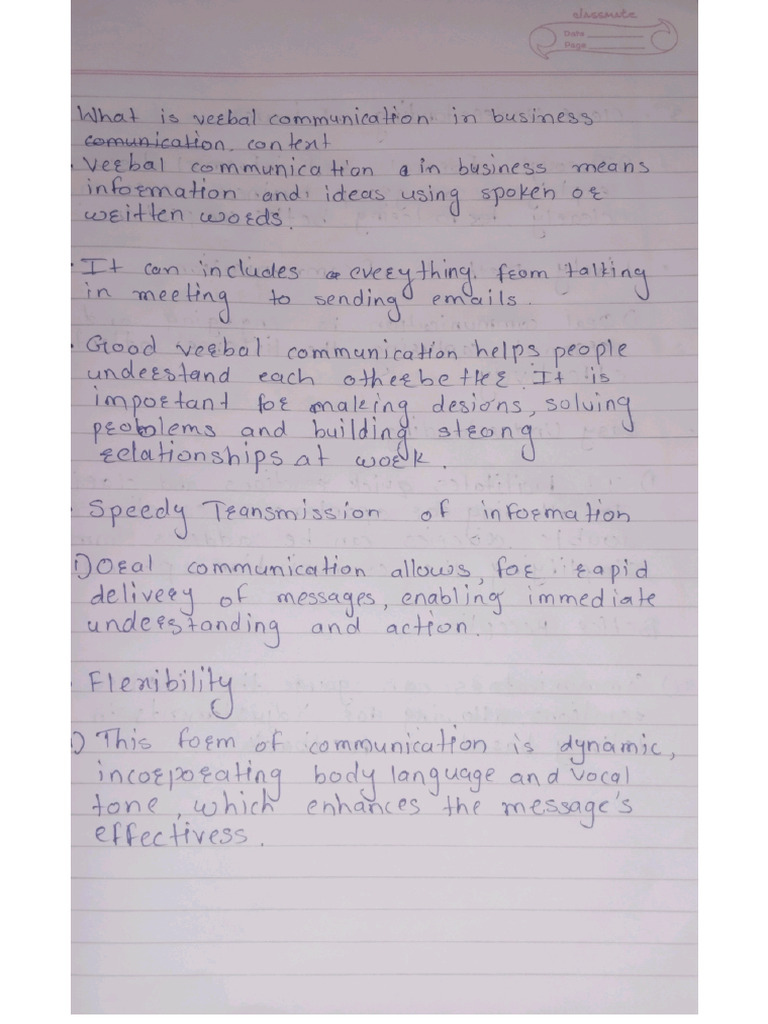 classmate
Date
Page
What is verbal communication in business
comunication. context
• Verbal communication in business means
information and ideas using spoken or
written words.
• It can includes everything from talking
in meeting to sending emails.
• Good verbal communication helps people
understand each other better. It is
important for making desions, solving
problems and building strong
relationships at work.
• Speedy Transmission of information
1) Oral communication allows, for rapid
delivery of messages, enabling immediate
understanding and action.
• Flexibility
1) This form of communication is dynamic,
incorporating body language and vocal
tone, which enhances the message's
effectivess.